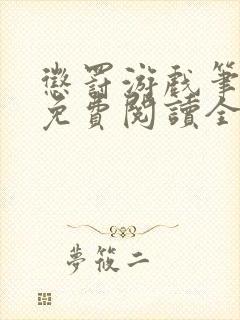 懲罰游戲筆
免費閱讀全
夢筱二